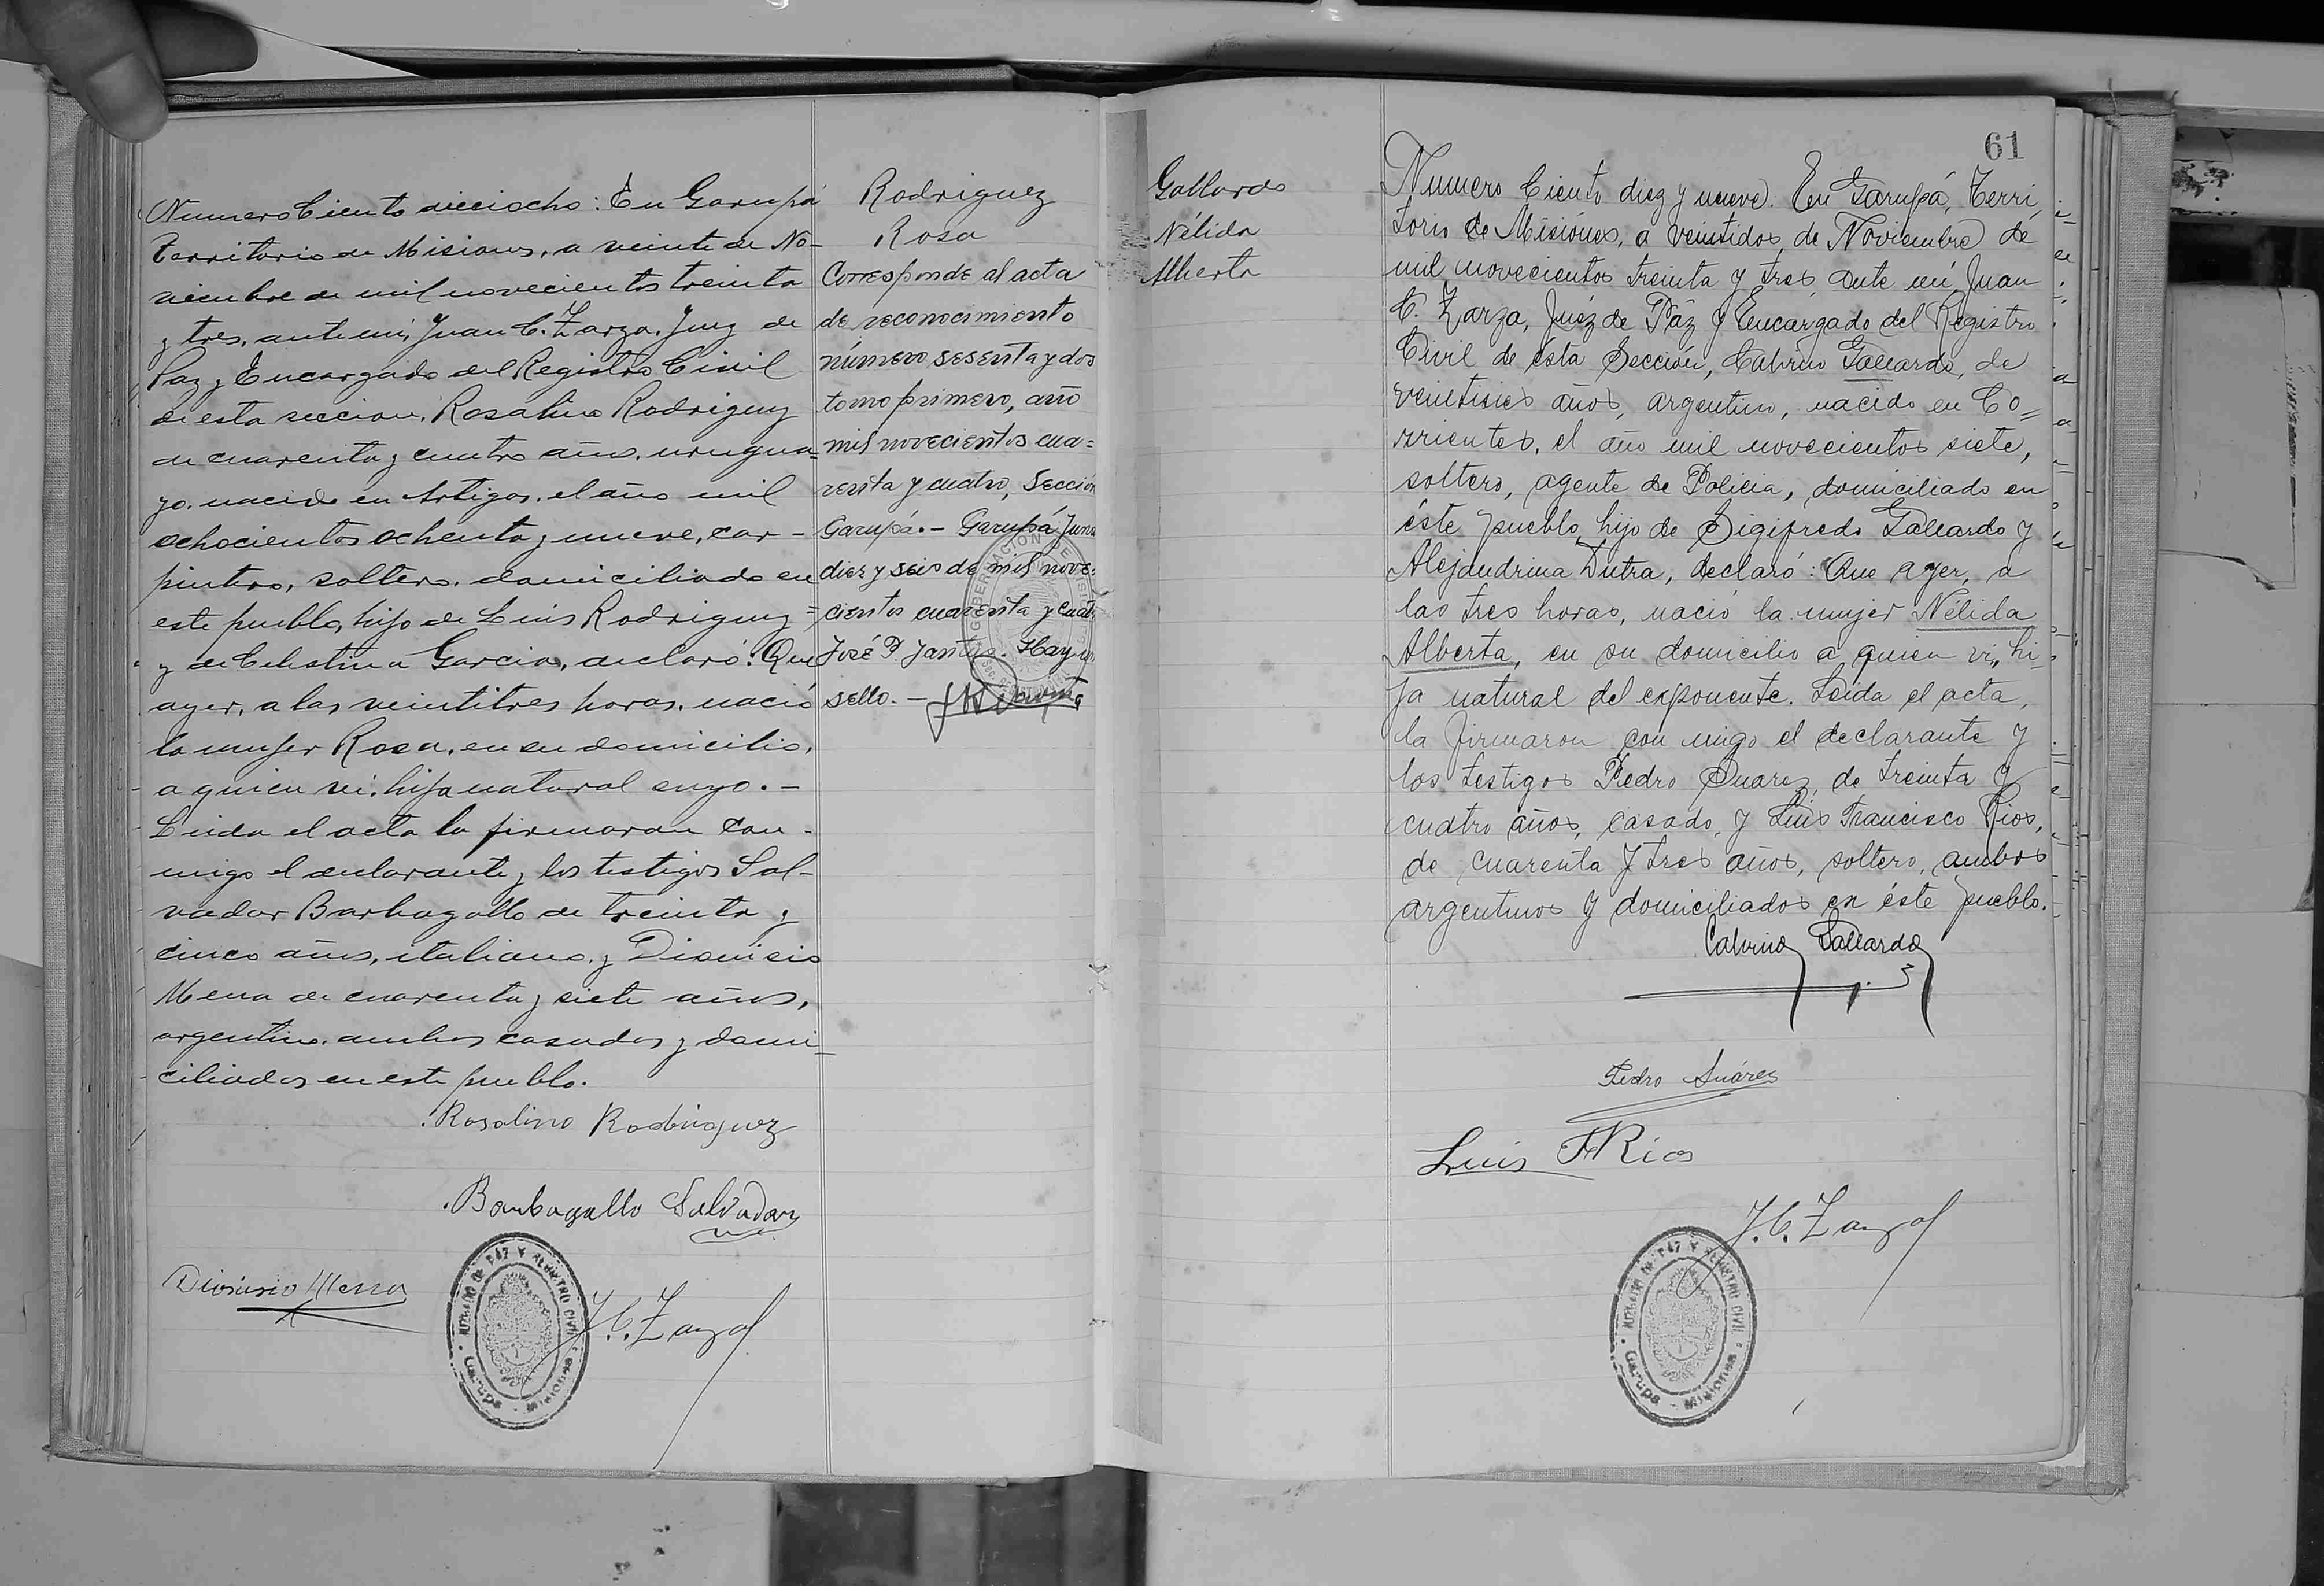 Numero Ciento dieciocho: En Garupá
Territorio de Misiones, a veinte de No-
viembre de mil novecientos treinta
y tres, ante mi, Juan C. Zarza, Juez de
Paz y Encargado del Registro Civil
de esta seccion, Rosalino Rodriguez
de cuarenta y cuatro años, urugua=
yo, nacido en Artigas, el año mil
ochocientos ochenta y nueve, car-
pintero, soltero, domiciliado en
este pueblo, hijo de Luis Rodriguez =
y de Celestina Garcia, declaró: Que
ayer, a las veintitres horas, nació
la mujer Rosa, en su domicilio,
a quien vi, hija natural suya.-
Leida el acta la firmaron con-
migo el declarante y los testigos Sal-
vador Barbagallo de treinta y
cinco años, italiano, y Dionisio
Mena de cuarenta y siete años,
argentino, ambos casados y domi-
ciliados en este pueblo.
Rosalino Rodriguez
Barbagallo Salvador
Dionisio Mena
J. C. Zarza
JUZGADO DE PAZ Y REGISTRO CIVIL
Garupa - Misiones
Rodriguez
Rosa
Corresponde al acta
de reconocimiento
número sesenta y dos
tomo primero, año
mil novecientos cua=
renta y cuatro, Sección
Garupá.- Garupá, Junio
diez y seis de mil nove=
cientos cuarenta y cuatro
José D. Hay un
sello.-
61
Gallardo
Nélida
Alberta
Numero Ciento diez y nueve. En Garupá, Terri
torio de Misiónes, a veintidos de Noviembre de
mil novecientos treinta y tres, ante mí, Juan
C. Zarza, Juéz de Páz y Encargado del Registro
Civil de ésta Seccion, Cabrino Gallardo, de
veintiseis años, argentino, nacido en Co=
rrientes, el año mil novecientos siete,
soltero, agente de Policia, domiciliado en
éste pueblo, hijo de Sigifredo Gallardo y
Alejandrina Dutra, declaró: Que ayer, a
las tres horas, nació la mujer Nélida
Alberta, en su domicilio a quien vi, hi-
ja natural del exponente. Leida el acta,
la firmaron con migo el declarante y
los testigos Pedro Suarez, de treinta y
cuatro años, casado, y Luis Francisco Rios,
de cuarenta y tres años, soltero, ambos
argentinos y domiciliados en éste pueblo.
Cabrino Gallardo
Pedro Suárez
Luis F Rios
J. C. Zarza
JUZGADO DE PAZ Y REGISTRO CIVIL
Garupa - Misiones